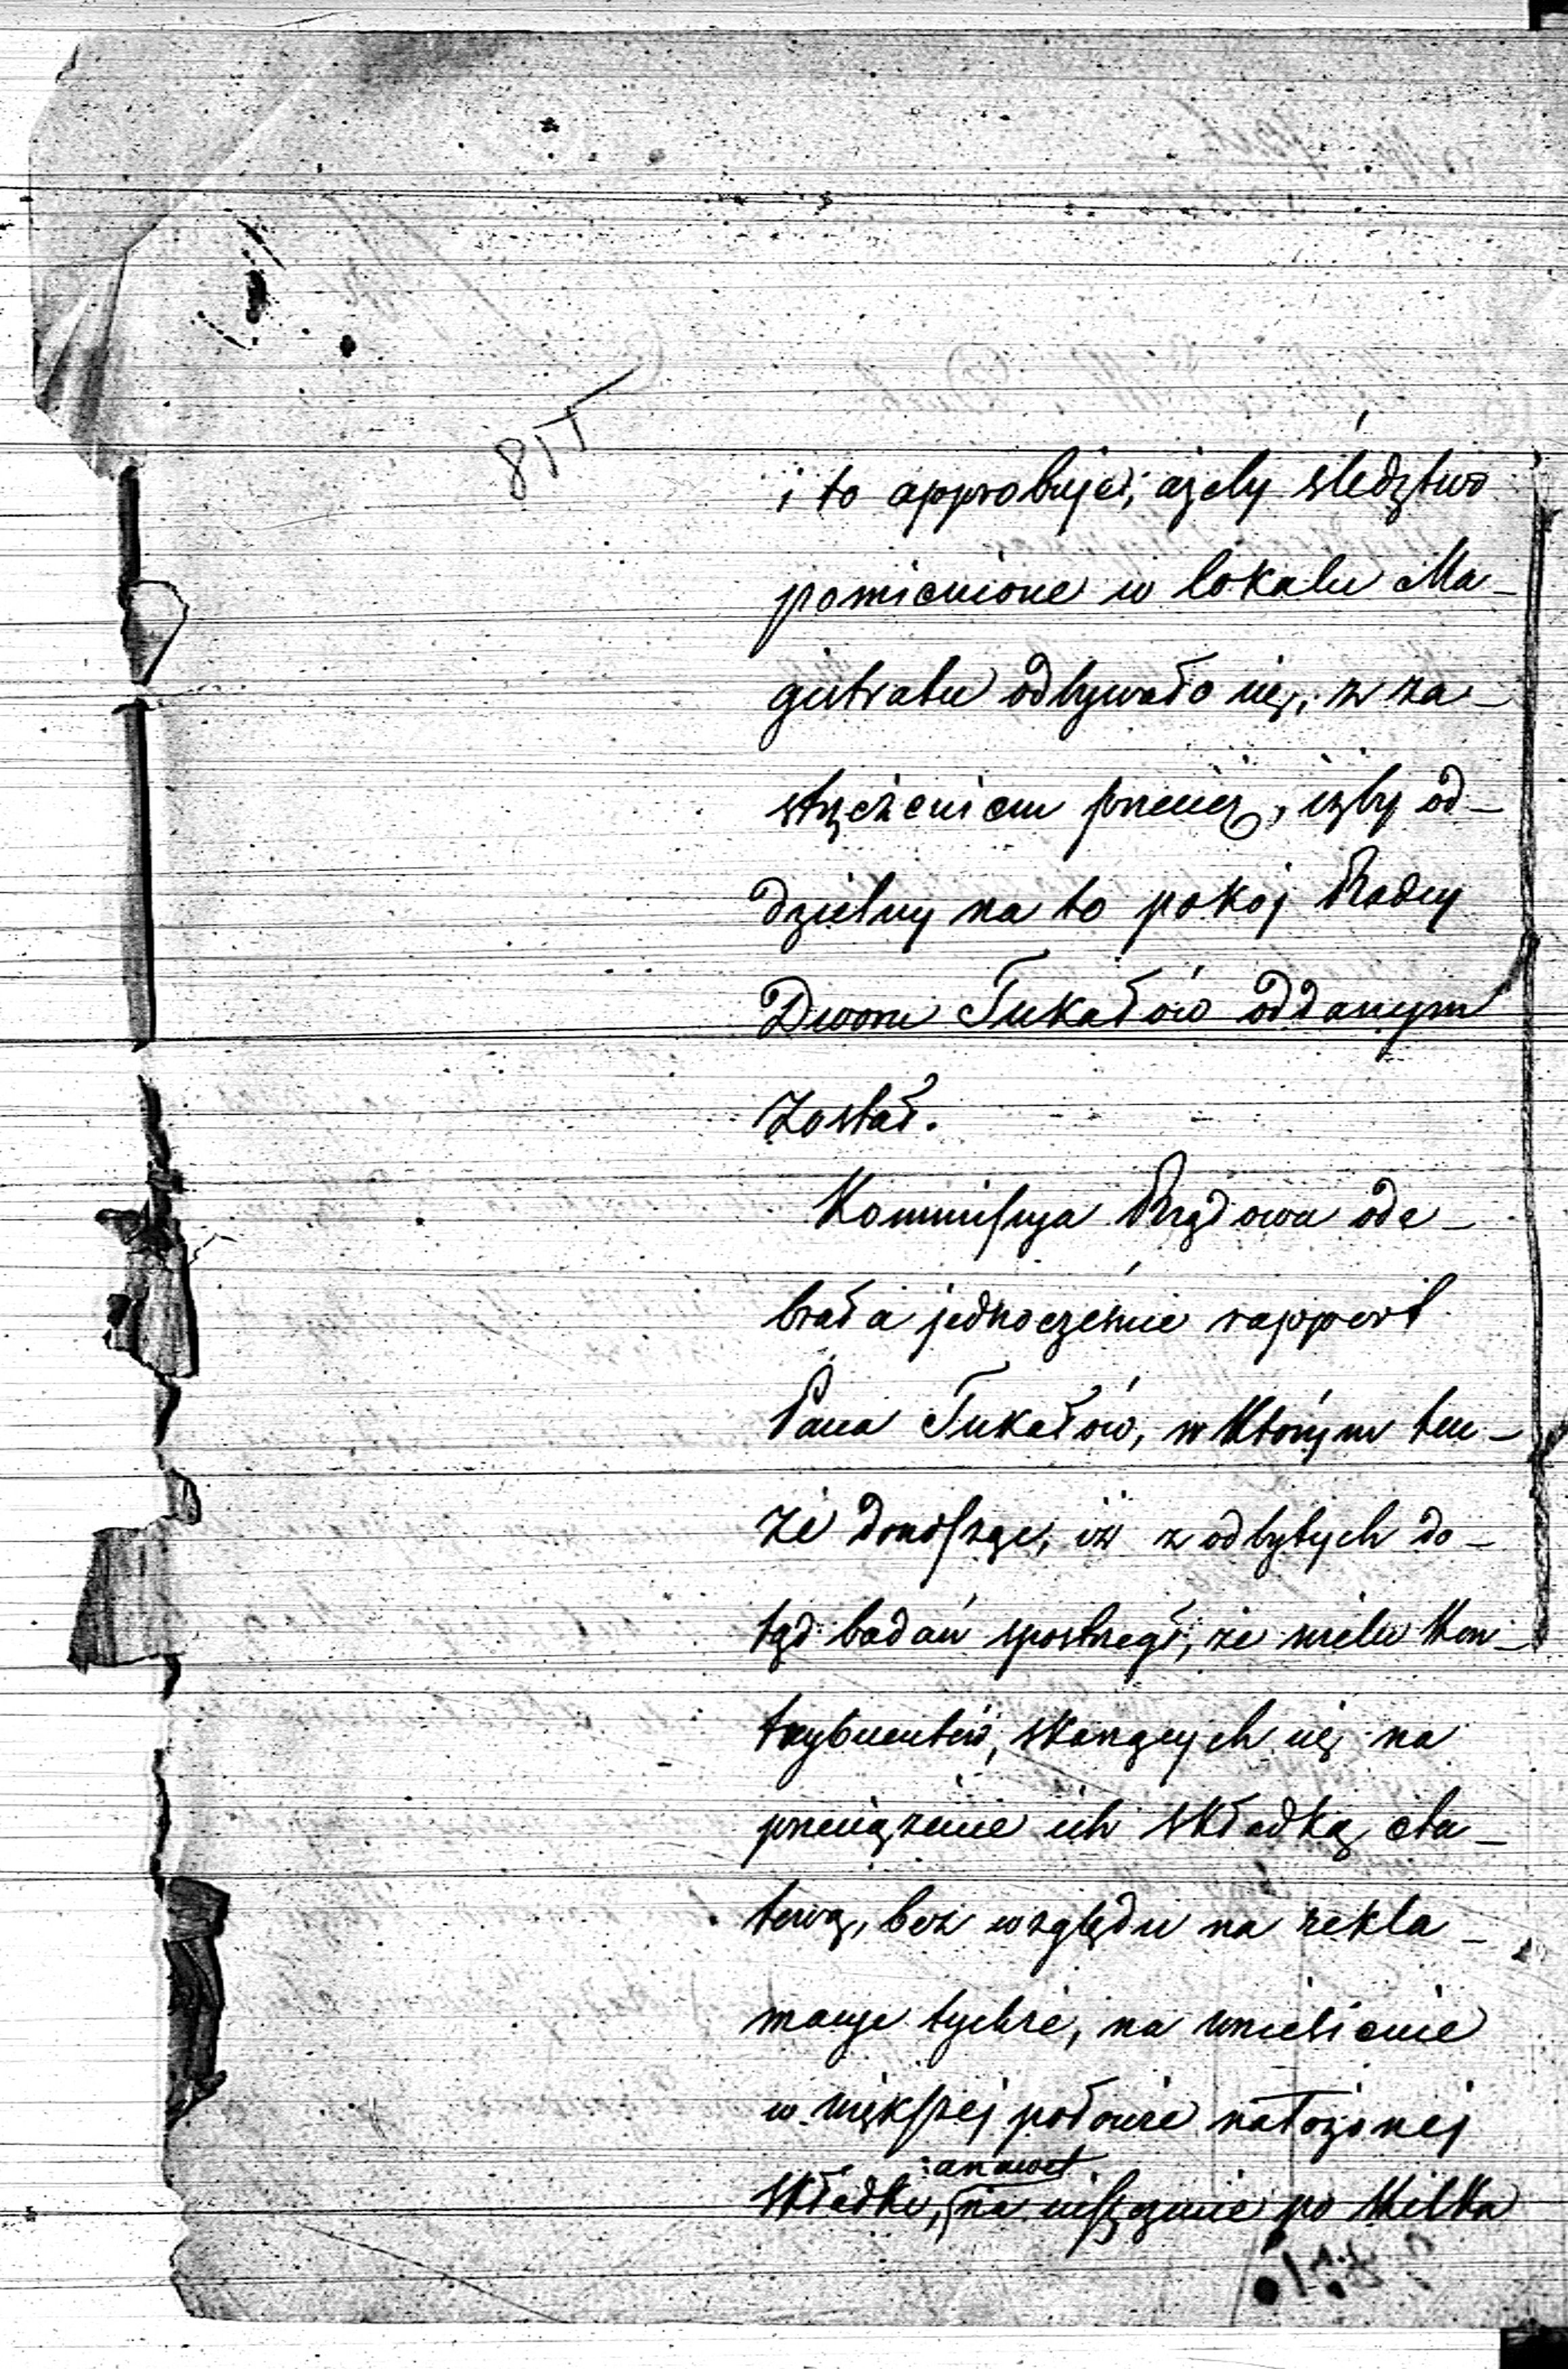 i to approbuje, ażeby śledztwo
pomienione w lokalu Ma-
gistratu odbywało się, z za-
strzeżeniem przecież, iżby od-
dzielny na to pokój Radcy
Dworu Tukałów oddanym
został.
Kommissyja Rządowa ode-
brała jednocześnie rapport
Pana Tukałów, w którym ten-
że donosząc, iż z odbytych do-
tąd badań spostrzegł, że wielu kon-
trybuentów, skarżących się na
przeciążenie ich składką eta-
tową, bez względu na rekla-
macye tychże, na wniesienie
w większej połowie nałożonej
składki, a nawet na uiszczenie po kilka